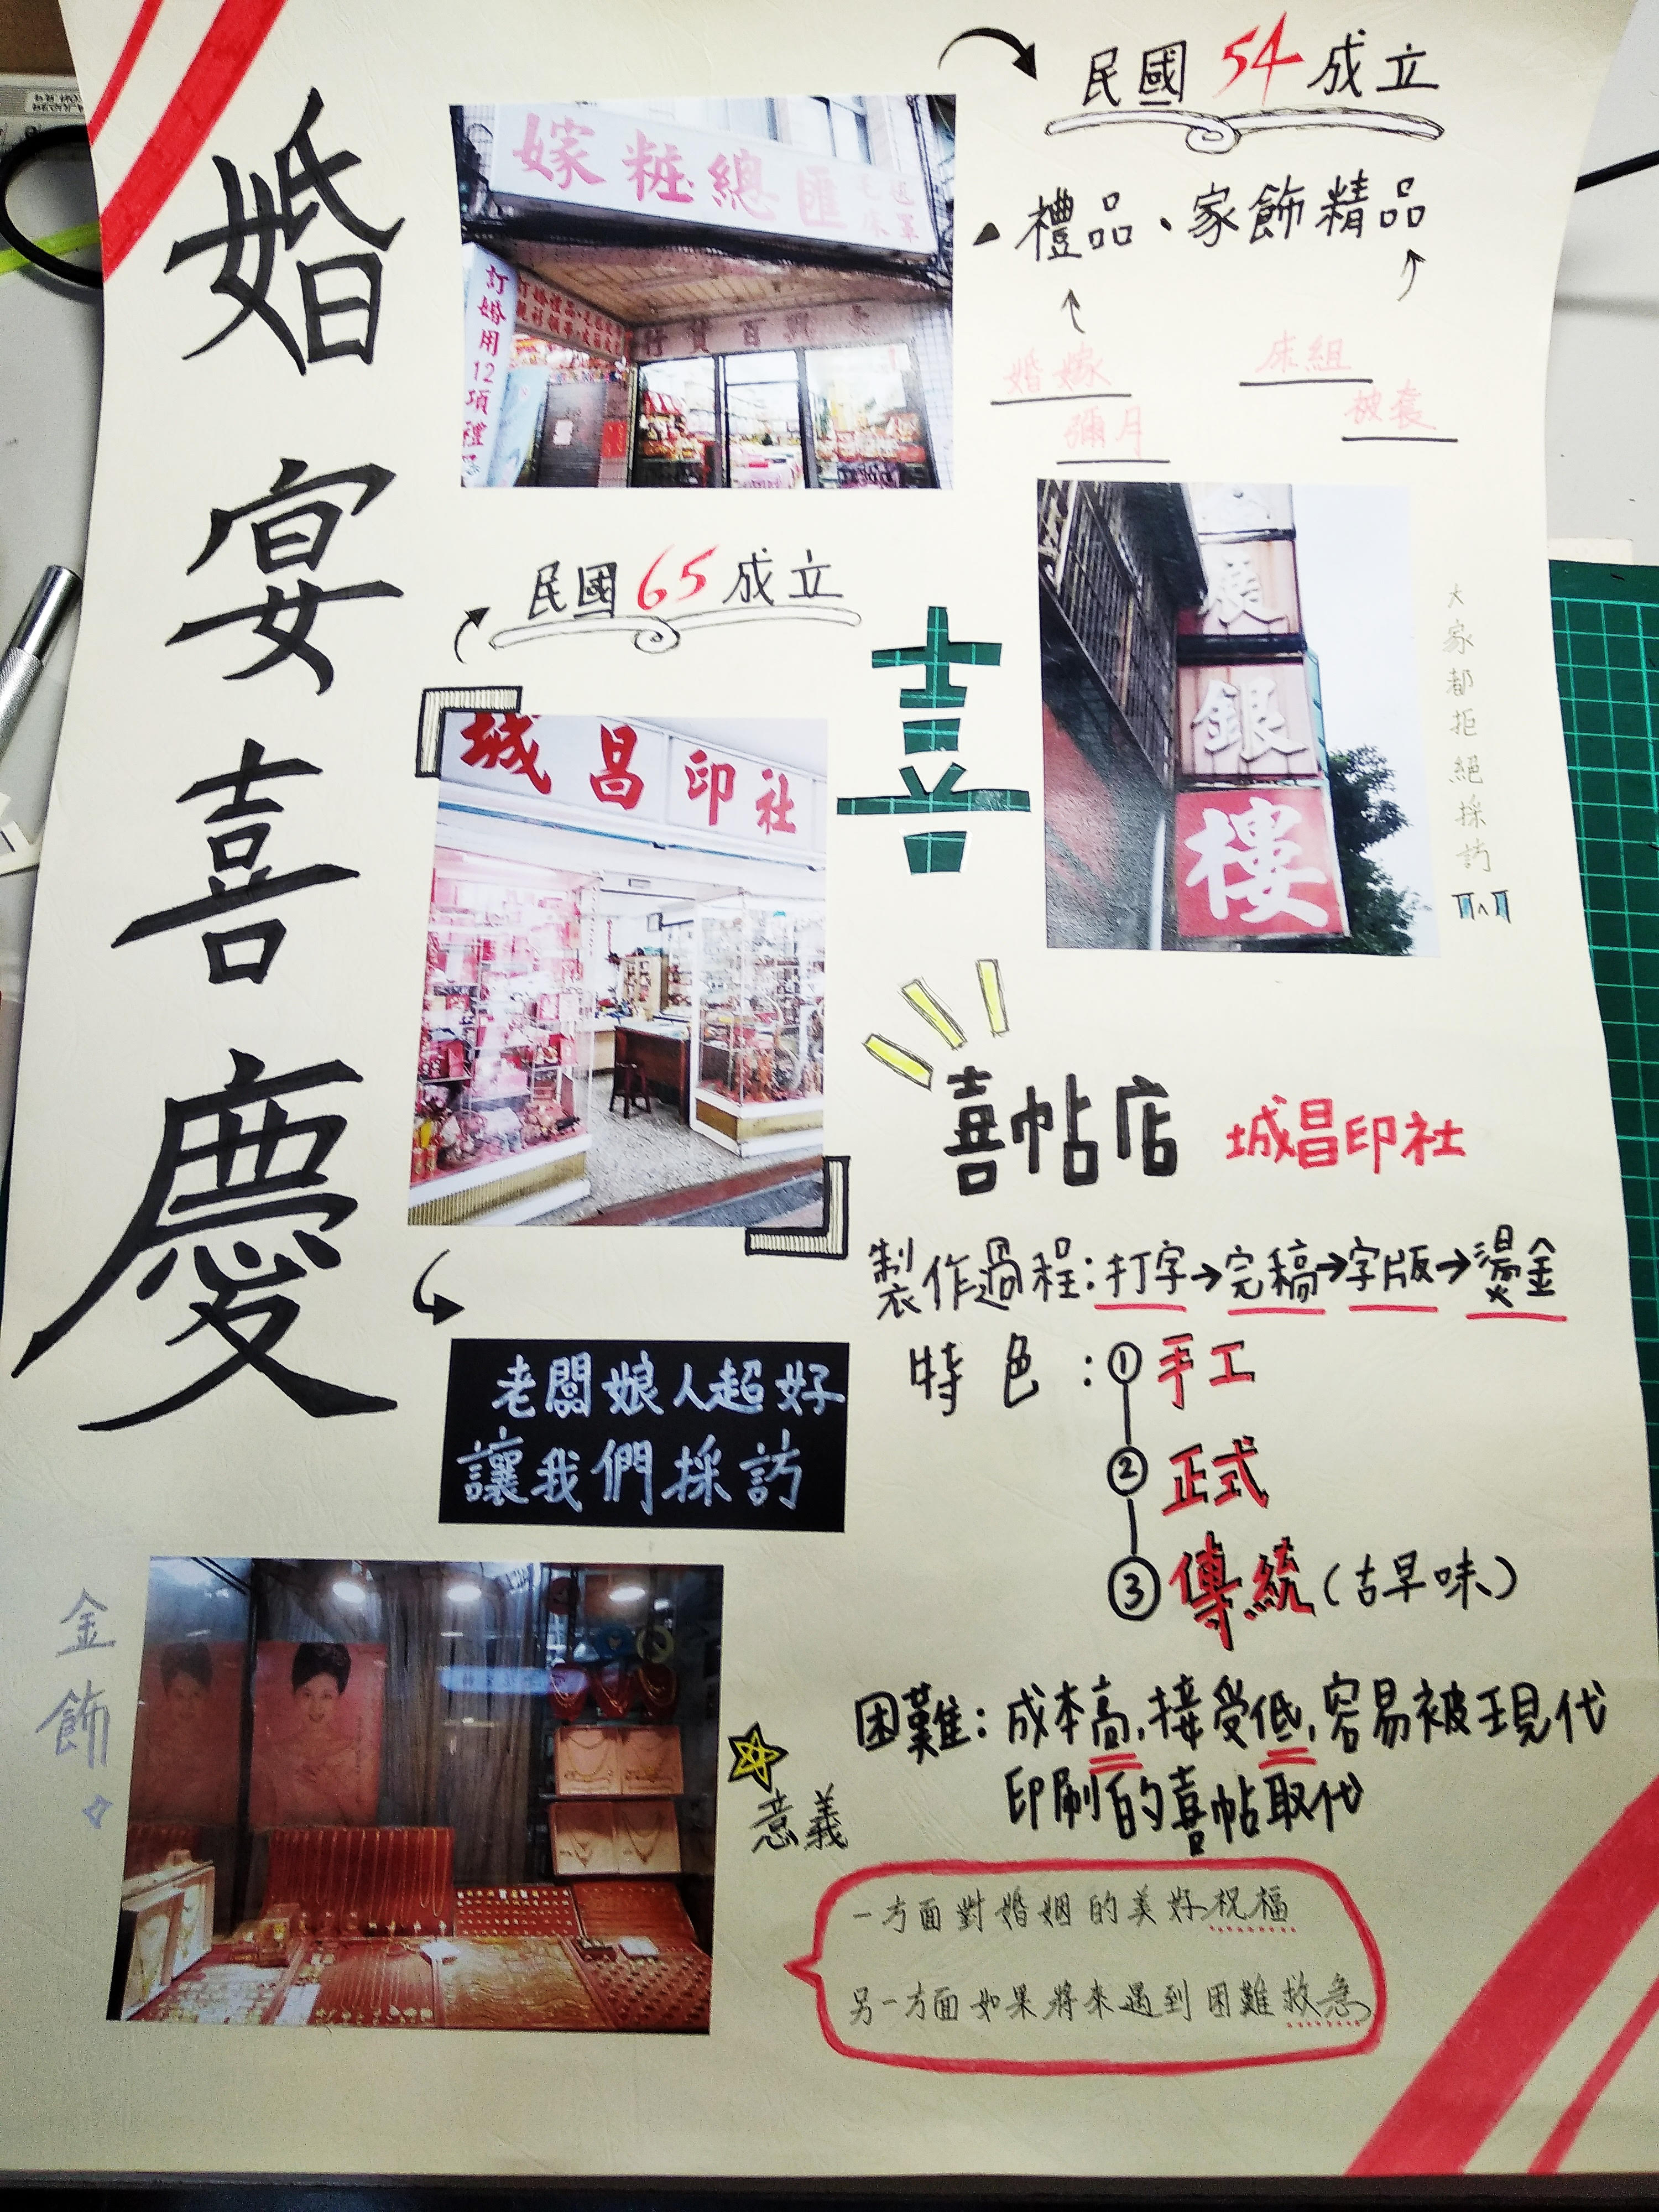 婚宴喜慶
民國54成立
嫁粧總匯
訂婚用12項禮
禮品、家飾精品
婚嫁
彌月
床組
被套
民國65成立
城昌印社
喜
銀
樓
大家都拒絕採訪
喜帖店 城昌印社
製作過程:打字→完稿→字版→燙金
特色:①手工
②正式
③傳統(古早味)
老闆娘人超好
讓我們採訪
困難:成本高,接受低,容易被現代
印刷的喜帖取代
金飾
意義
一方面對婚姻的美好祝福
另一方面如果將來遇到困難救急